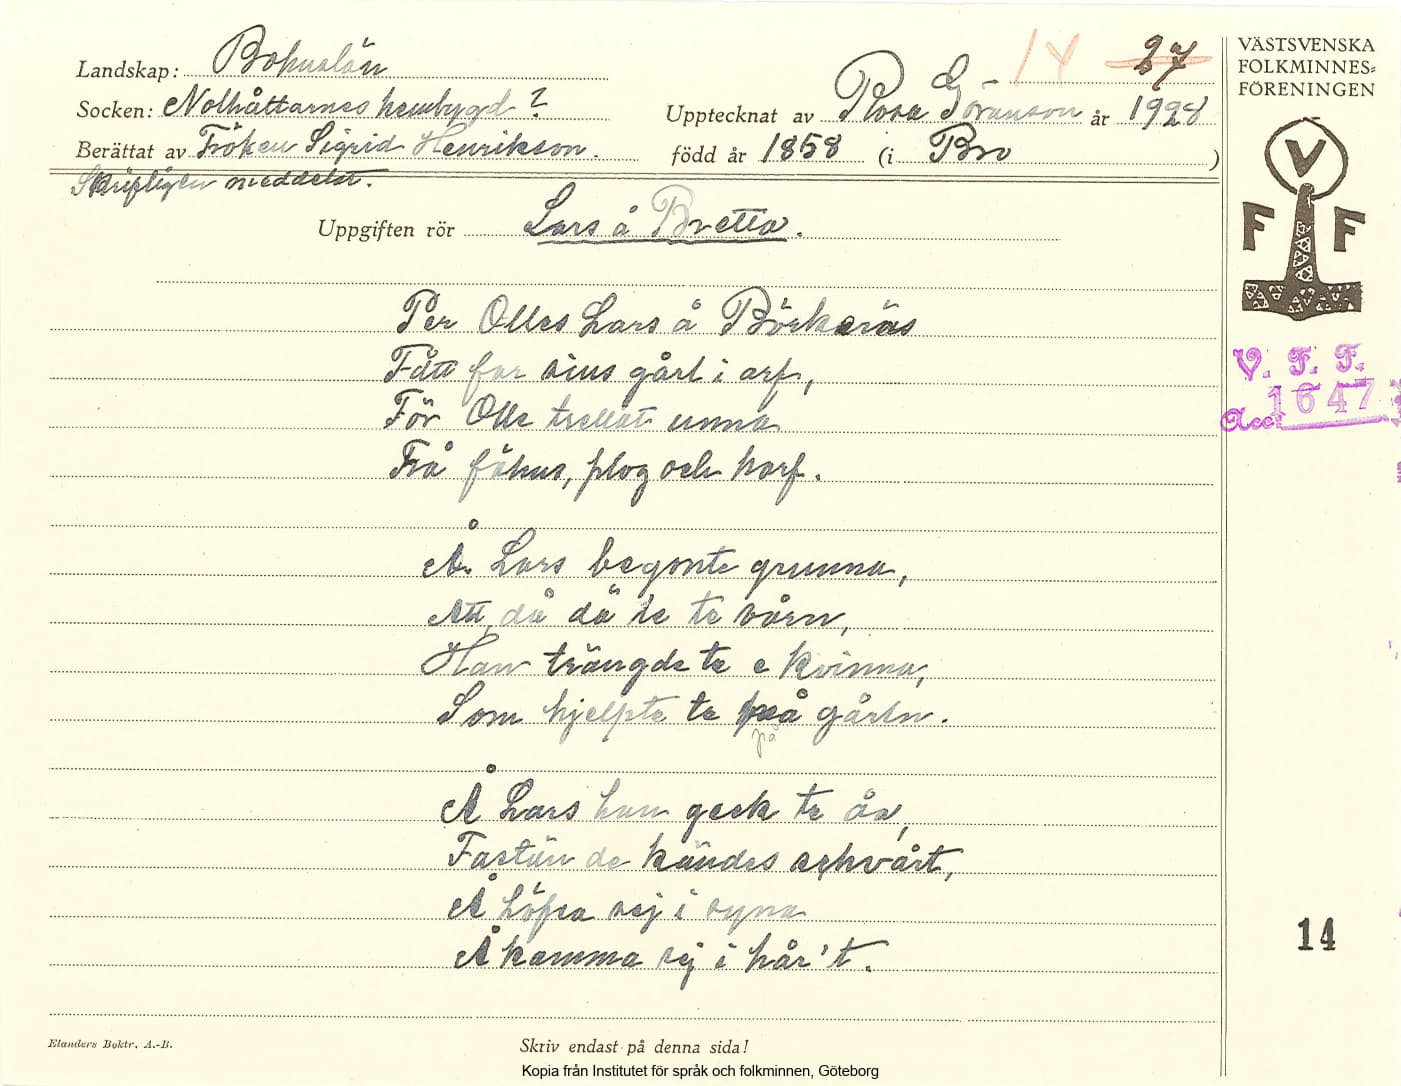 Landskap: Bohuslän
Socken: Nolhåttarnes hembygd?
Berättat av Fröken Sigrid Henrikson.
Skriftligen meddelat.
14 27
Upptecknat av Rosa Göranson år 1928
född år 1858 (i Bro )
Uppgiften rör Lars å Bretta.
Per Olles Lars å Börkeräs
Fått far sius gårt i arf,
För Olle trettat unna
Frå fähus, plog och harf.
Å Lars begynte grunna,
Att då dä te te vårn,
Han trängde te e kvinna,
Som hjelpte te på gårtn.
på
Å Lars han geck te åa,
Fastän de kändes schvårt,
Å Löfsa sej i syna
Å kamma sej i hår't.
VÄSTSVENSKA
FOLKMINNES=
FÖRENINGEN
V
F F
V. F. F.
Acc: 1647
14
Elanders Boktr. A.-B.
Skriv endast på denna sida!
Kopia från Institutet för språk och folkminnen, Göteborg